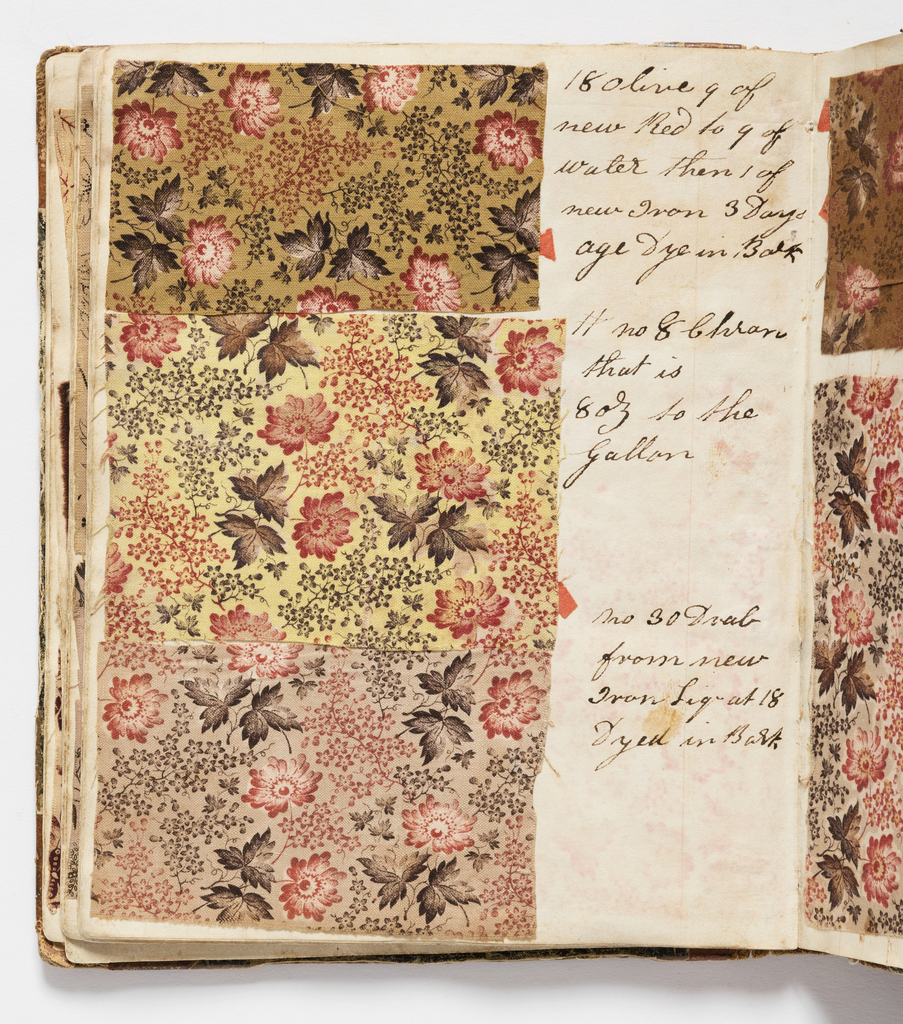 18 olive 9 of
new Red to 9 of
water then 1 of
new Iron 3 Days
age Dye in Bark
11 no 8 Chrom
that is
8 oz to the
Gallon
no 30 Drab
from new
Iron Liq at 18
Dyed in Bark